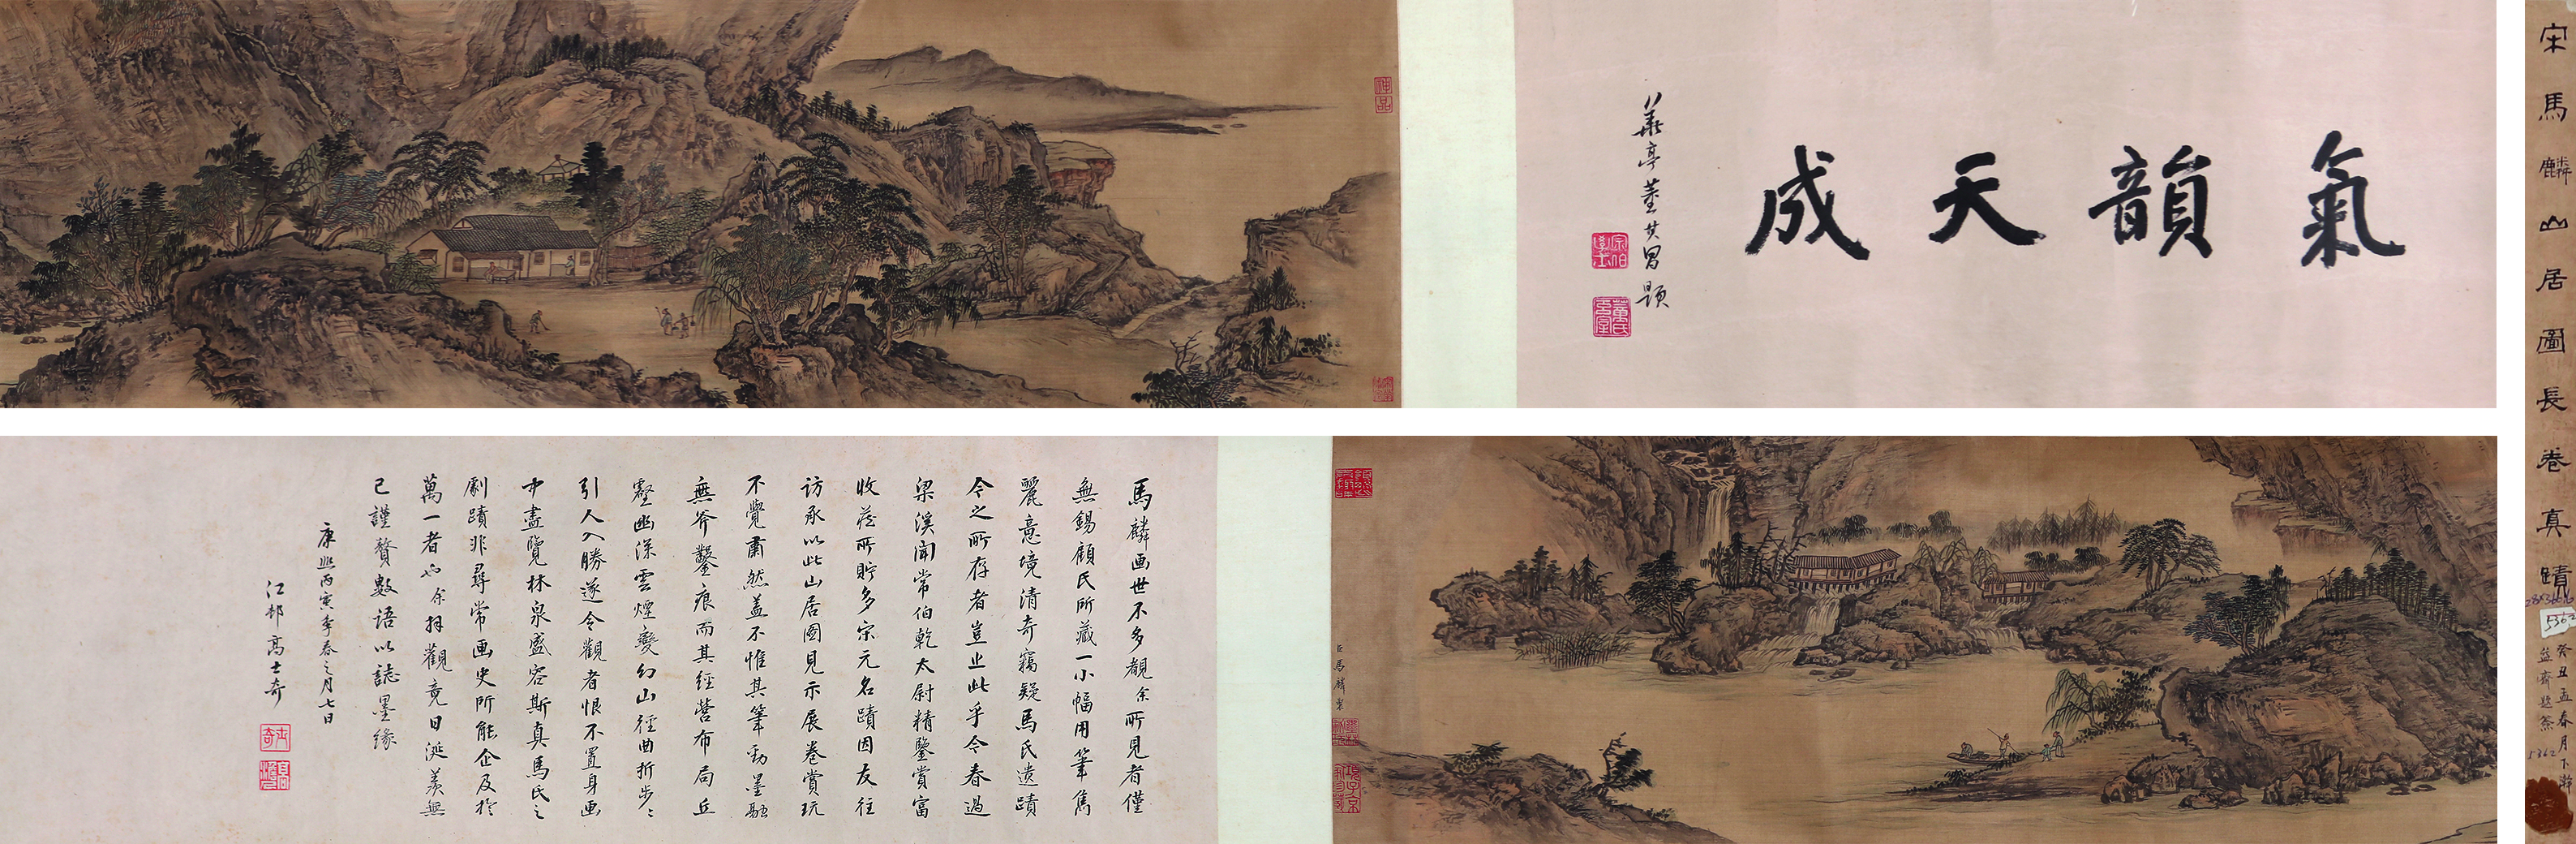 宋馬麟山居圖長卷真蹟
癸丑孟春月下澣
5362
5362
氣韻天成
華亭董其昌題
神品
臣馬麟
馬麟画世不多覩余所見者僅
無錫顧氏所藏一小幅用筆雋
麗意境清奇竊疑馬氏遺蹟
今之所存者豈止此乎今春過
梁溪聞常伯乾太尉精鑒賞富
收藏所貯多宋元名蹟因友往
訪承以此山居圖見示展卷賞玩
不覺肅然蓋不惟其筆勁墨融
無斧鑿痕而其經營布局丘
壑幽深雲煙變幻山徑曲折步〻
引人入勝遂令觀者恨不置身画
中盡覽林泉盛容斯真馬氏之
劇蹟非尋常画史所能企及於
萬一者也余拜觀竟日涎羨無
已謹贅數語以誌墨緣
康熙丙寅季春之月七日
江邨高士奇